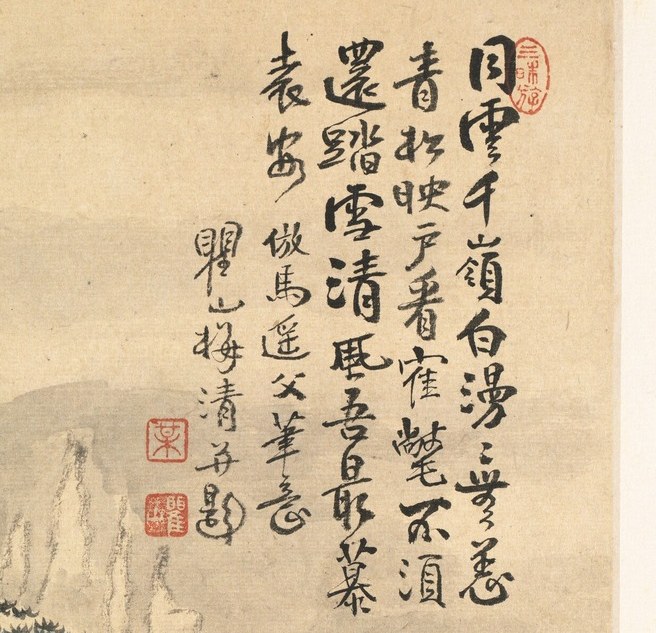 同雲千嶺白漫〻無恙
青松映戶看寉氅不須
還踏雪清風吾最慕
袁安 倣馬遥父筆意
瞿山梅清并題
某